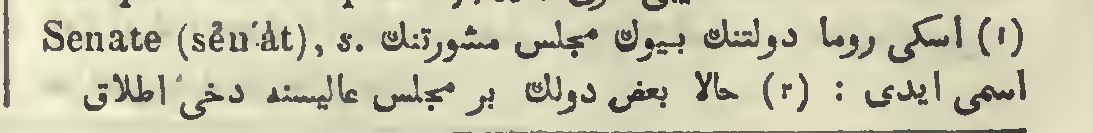 Senate (sĕn′ȧt), s. (١) اسكی روما دولتنك بیوك مجلس مشورتنك
اسمی ایدی : (٢) حالا بعض دولك بر مجلس عالیسنه دخی اطلاق